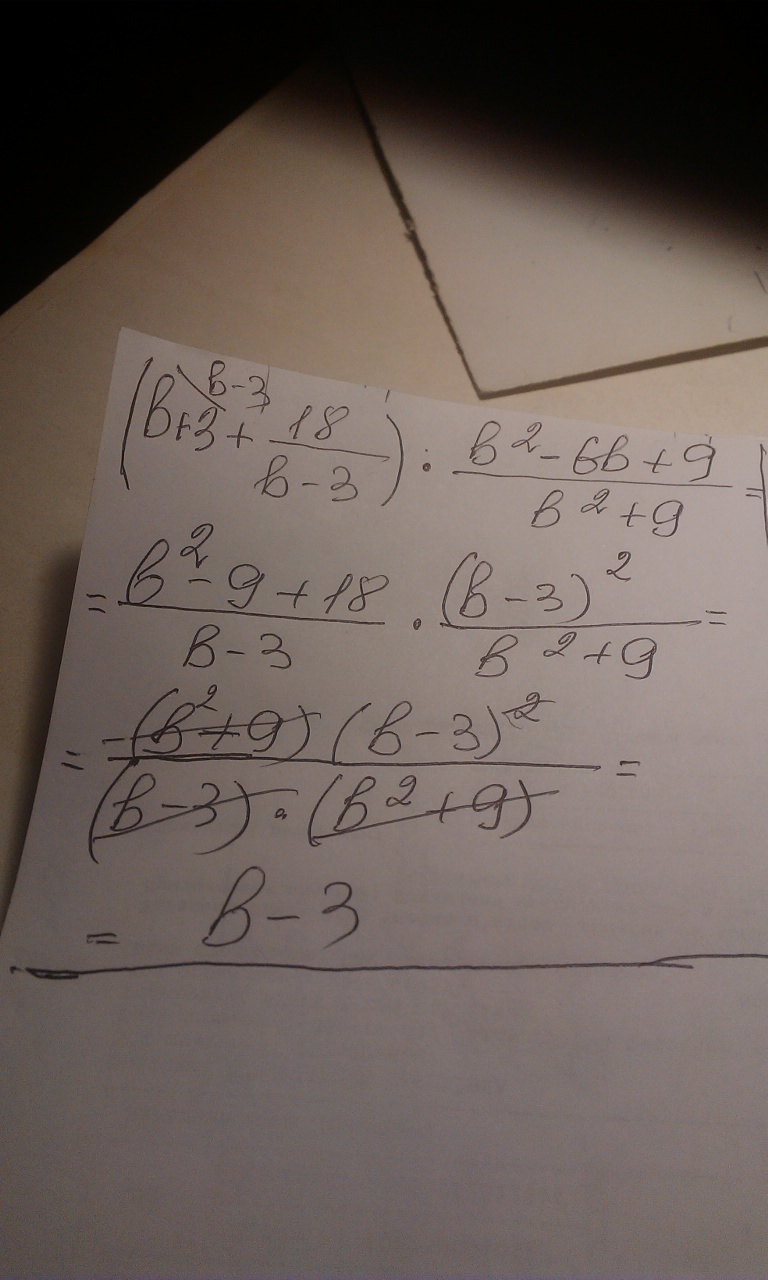 (b+3 \ b-3 + 18/(b-3)) · (b²-6b+9)/(b²+9) =
= (b²-9+18)/(b-3) · (b-3)²/(b²+9) =
= -(b²+9)(b-3)²/((b-3)·(b²+9)) =
= b-3